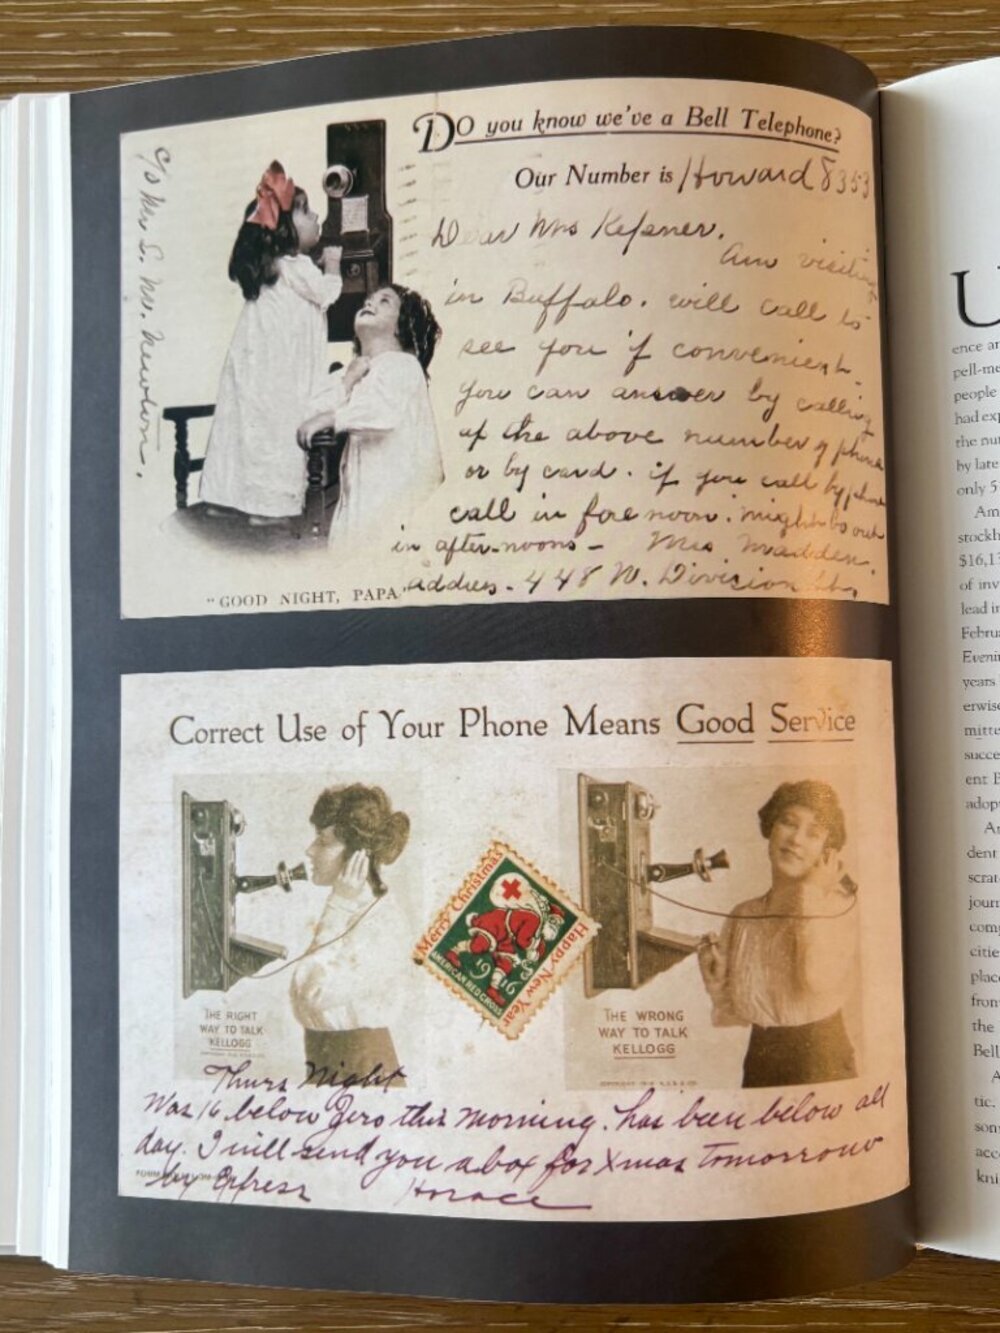 Do you know we've a Bell Telephone?
Our Number is Howard 8353
Dear Mrs
Am visiting
in Buffalo. will call to
see you if convenient.
You can answer by calling
up the above number of phone
or by card. if you call by phone
call in fore noon. might be out
in after-noons – Mrs Madden.
address. 448 N. Division St.
c/o Mrs S. Newton.
"GOOD NIGHT, PAPA"
Correct Use of Your Phone Means Good Service
THE RIGHT
WAY TO TALK
KELLOGG
Merry Christmas
Happy New Year
AMERICAN RED CROSS
1916
THE WRONG
WAY TO TALK
KELLOGG
Thurs Night
Was 16 below Zero this morning. has been below all
day. I will send you a box for Xmas tomorrow
by Express Horace
U
ence
pell-me
people
had exp
the nu
by late
only 5
Am
stockh
$16,1
of inv
lead in
Februa
Evenin
years
erwise
mitte
succe
ent B
adop
A
dent
scrat
journ
com
citie
place
fron
the
Bell
A
tic.
son
acc
kni